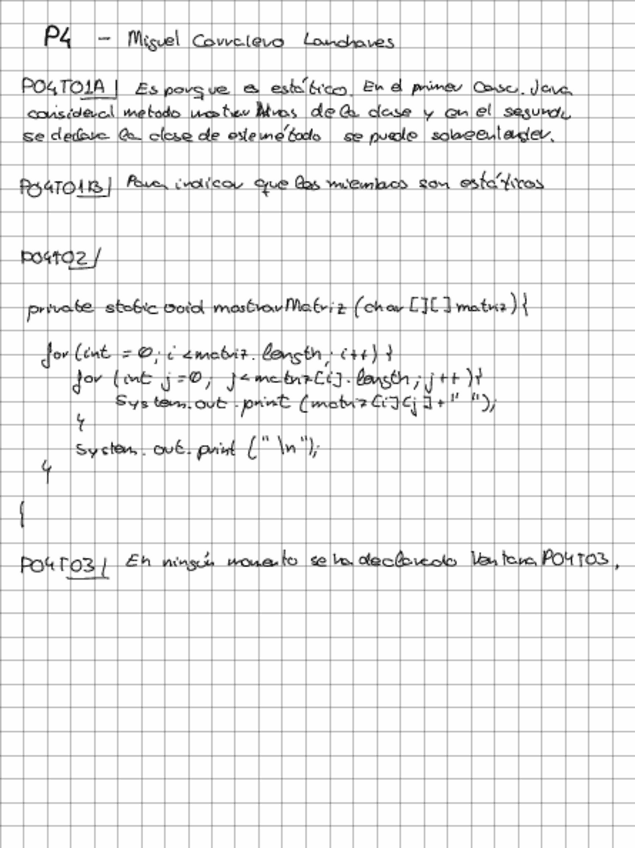 P4 - Miguel Carralero Lanchares
P04T01A| Es porque es estático. En el primer caso. Java
considera método mostrar de la clase y en el segundo
se declara la clase de este método se puede sobreentender.
P04T01B| Para indicar que los miembros son estáticos
P04T02/
private static void mostrarMatriz (char [][] matriz) {
for (int = 0; i < matriz.length; i++) {
for (int j=0; j < matriz[i].length; j++) {
System.out.print (matriz[i][j]+" ");
}
System.out.print ("\n");
}
{
P04T03/ En ningún momento se ha declarado Ventana P04T03.